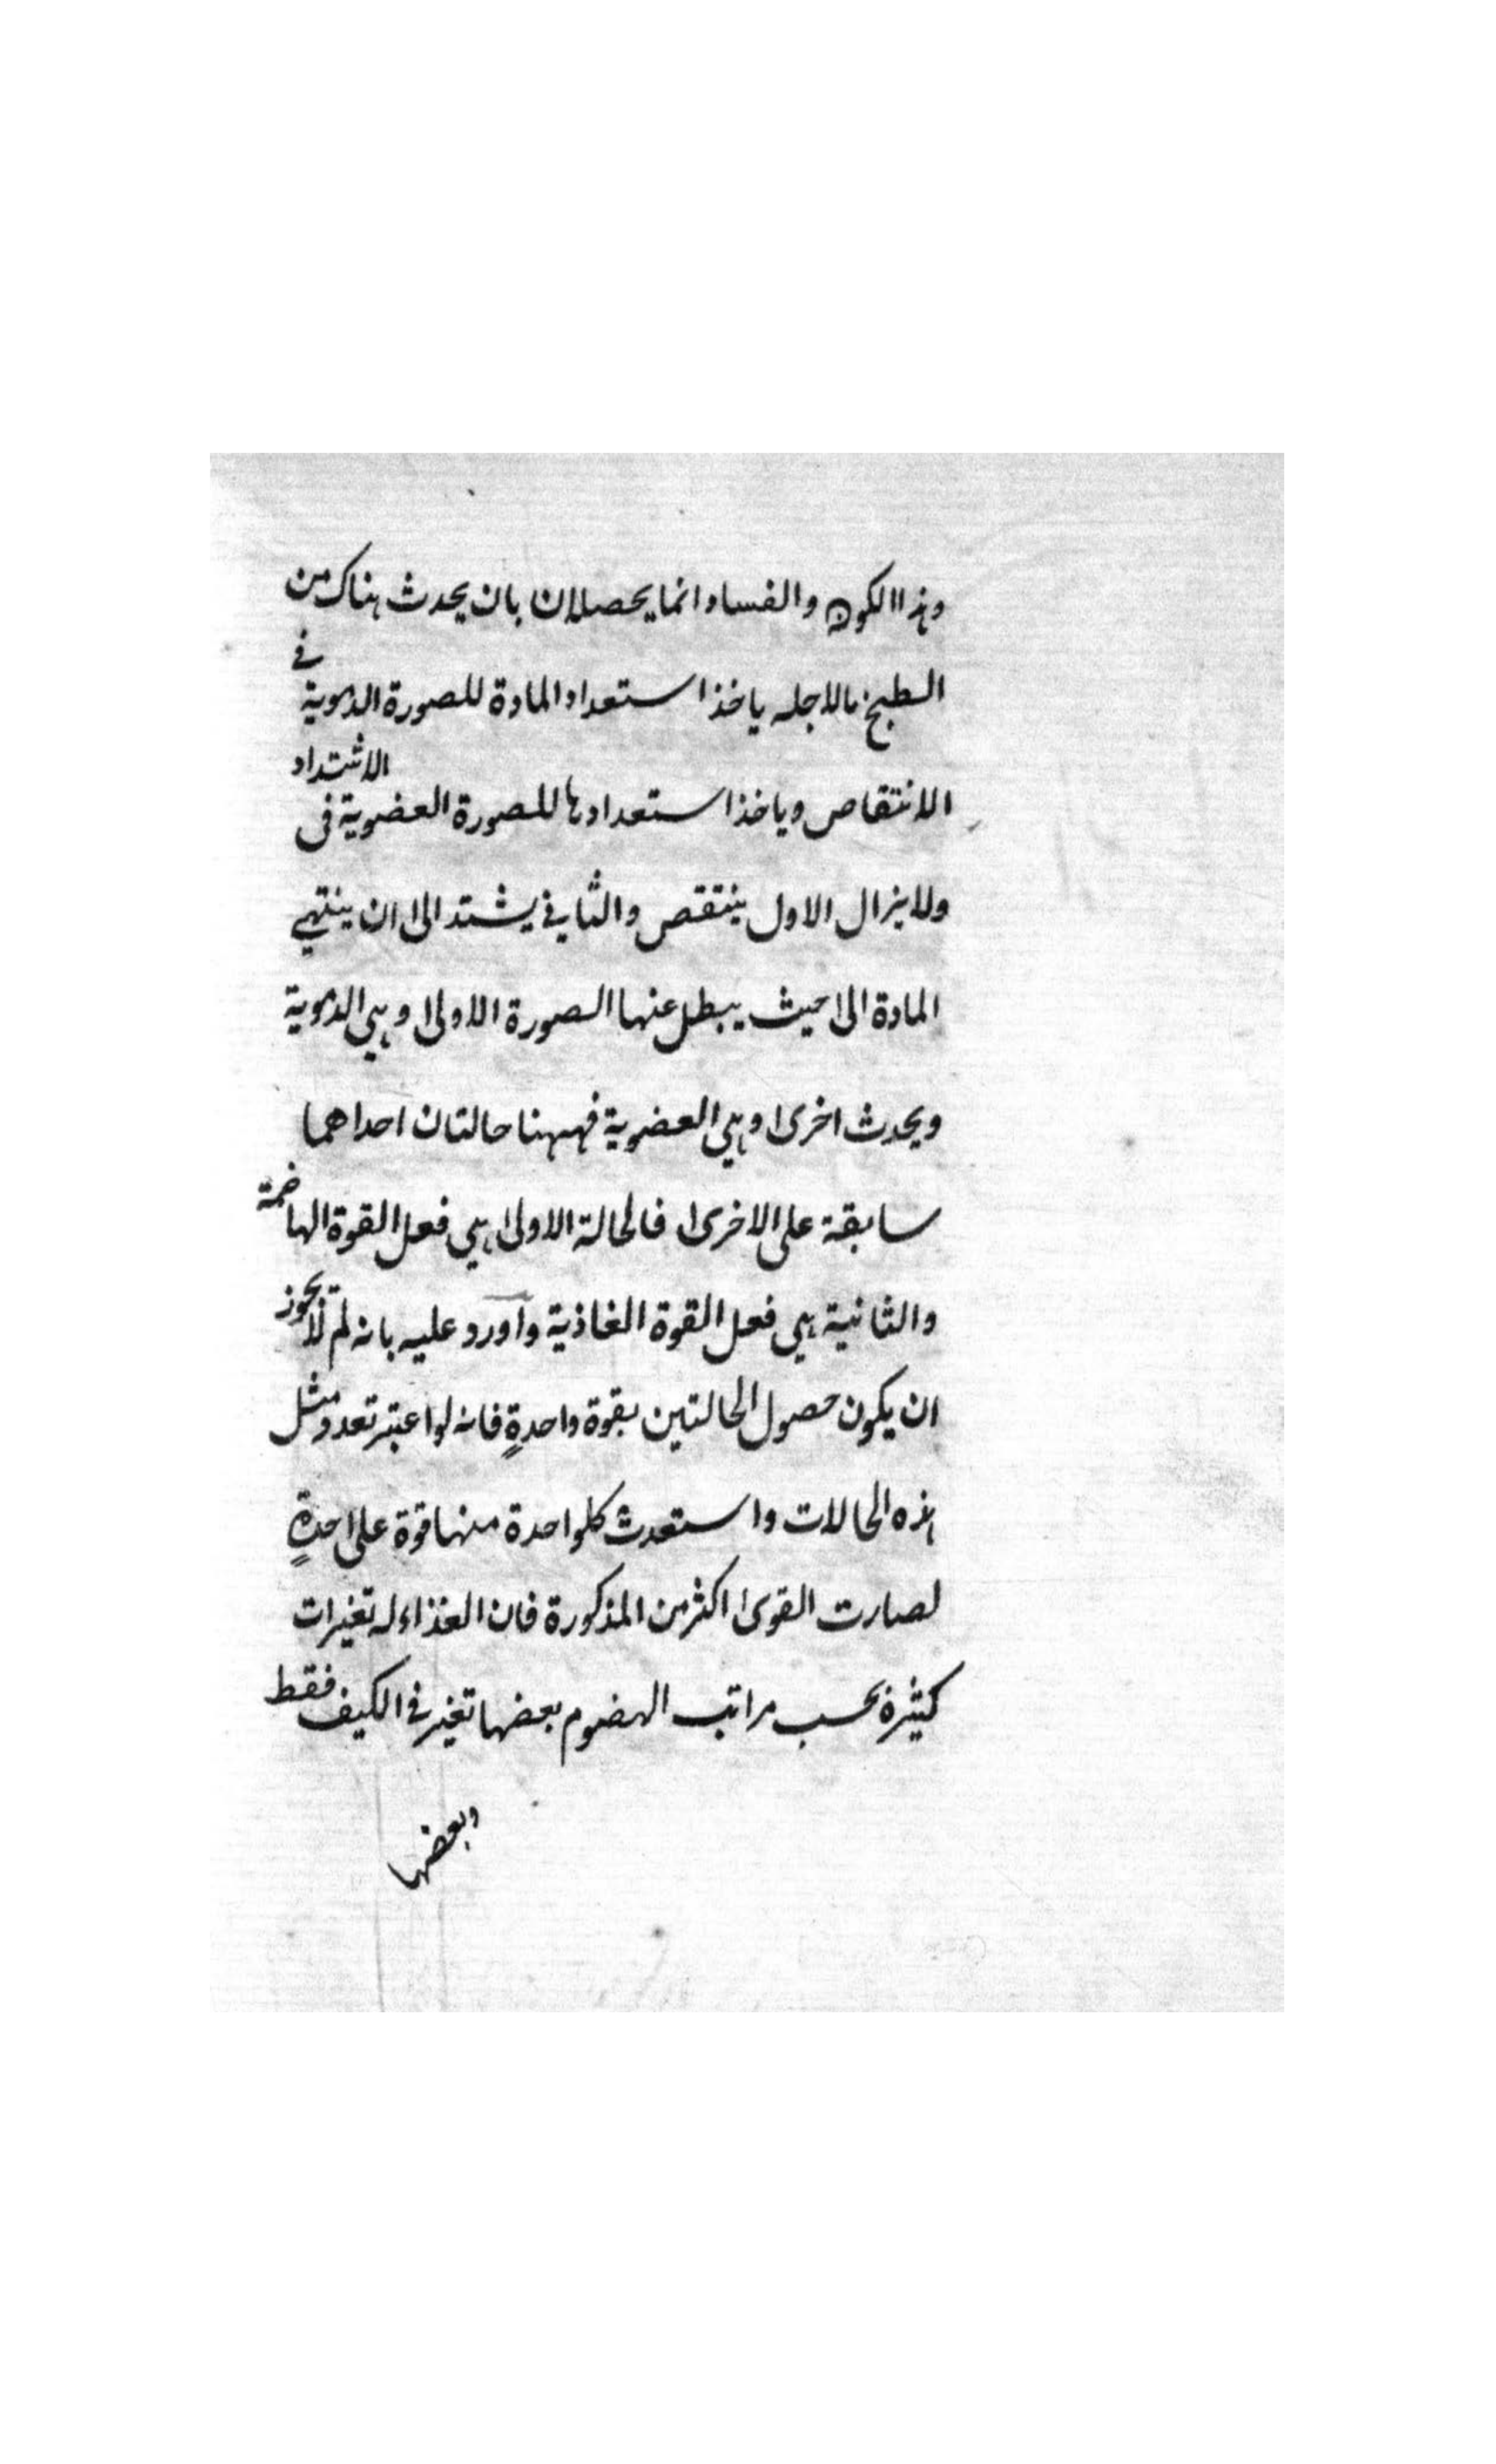 وهذا الكون والفساد انما يحصلان بان يحدث هناك من
الطبخ ما لاجله ياخذ استعداد المادة للصورة الدموية في
الانتقاص وياخذ استعدادها للصورة العضوية في الاشتداد
ولا يزال الاول ينتقص والثاني يشتد الى ان ينتهي
المادة الى حيث يبطل عنها الصورة الاولى وهي الدموية
ويحدث اخرى وهي العضوية فههنا حالتان احداهما
سابقة على الاخرى فالحالة الاولى هي فعل القوة الهاضمة
والثانية هي فعل القوة الغاذية وأورد عليه بانه لم لا يجوز
ان يكون حصول الحالتين بقوة واحدةٍ فانه لو اعتبر تعدد مثل
هذه الحالات واستعدث كلواحدة منها قوة على احدةٍ
لصارت القوى اكثر من المذكورة فان الغذاء له تغيرات
كثيرة بحسب مراتب الهضوم بعضها تغير في الكيف فقط
وبعضها